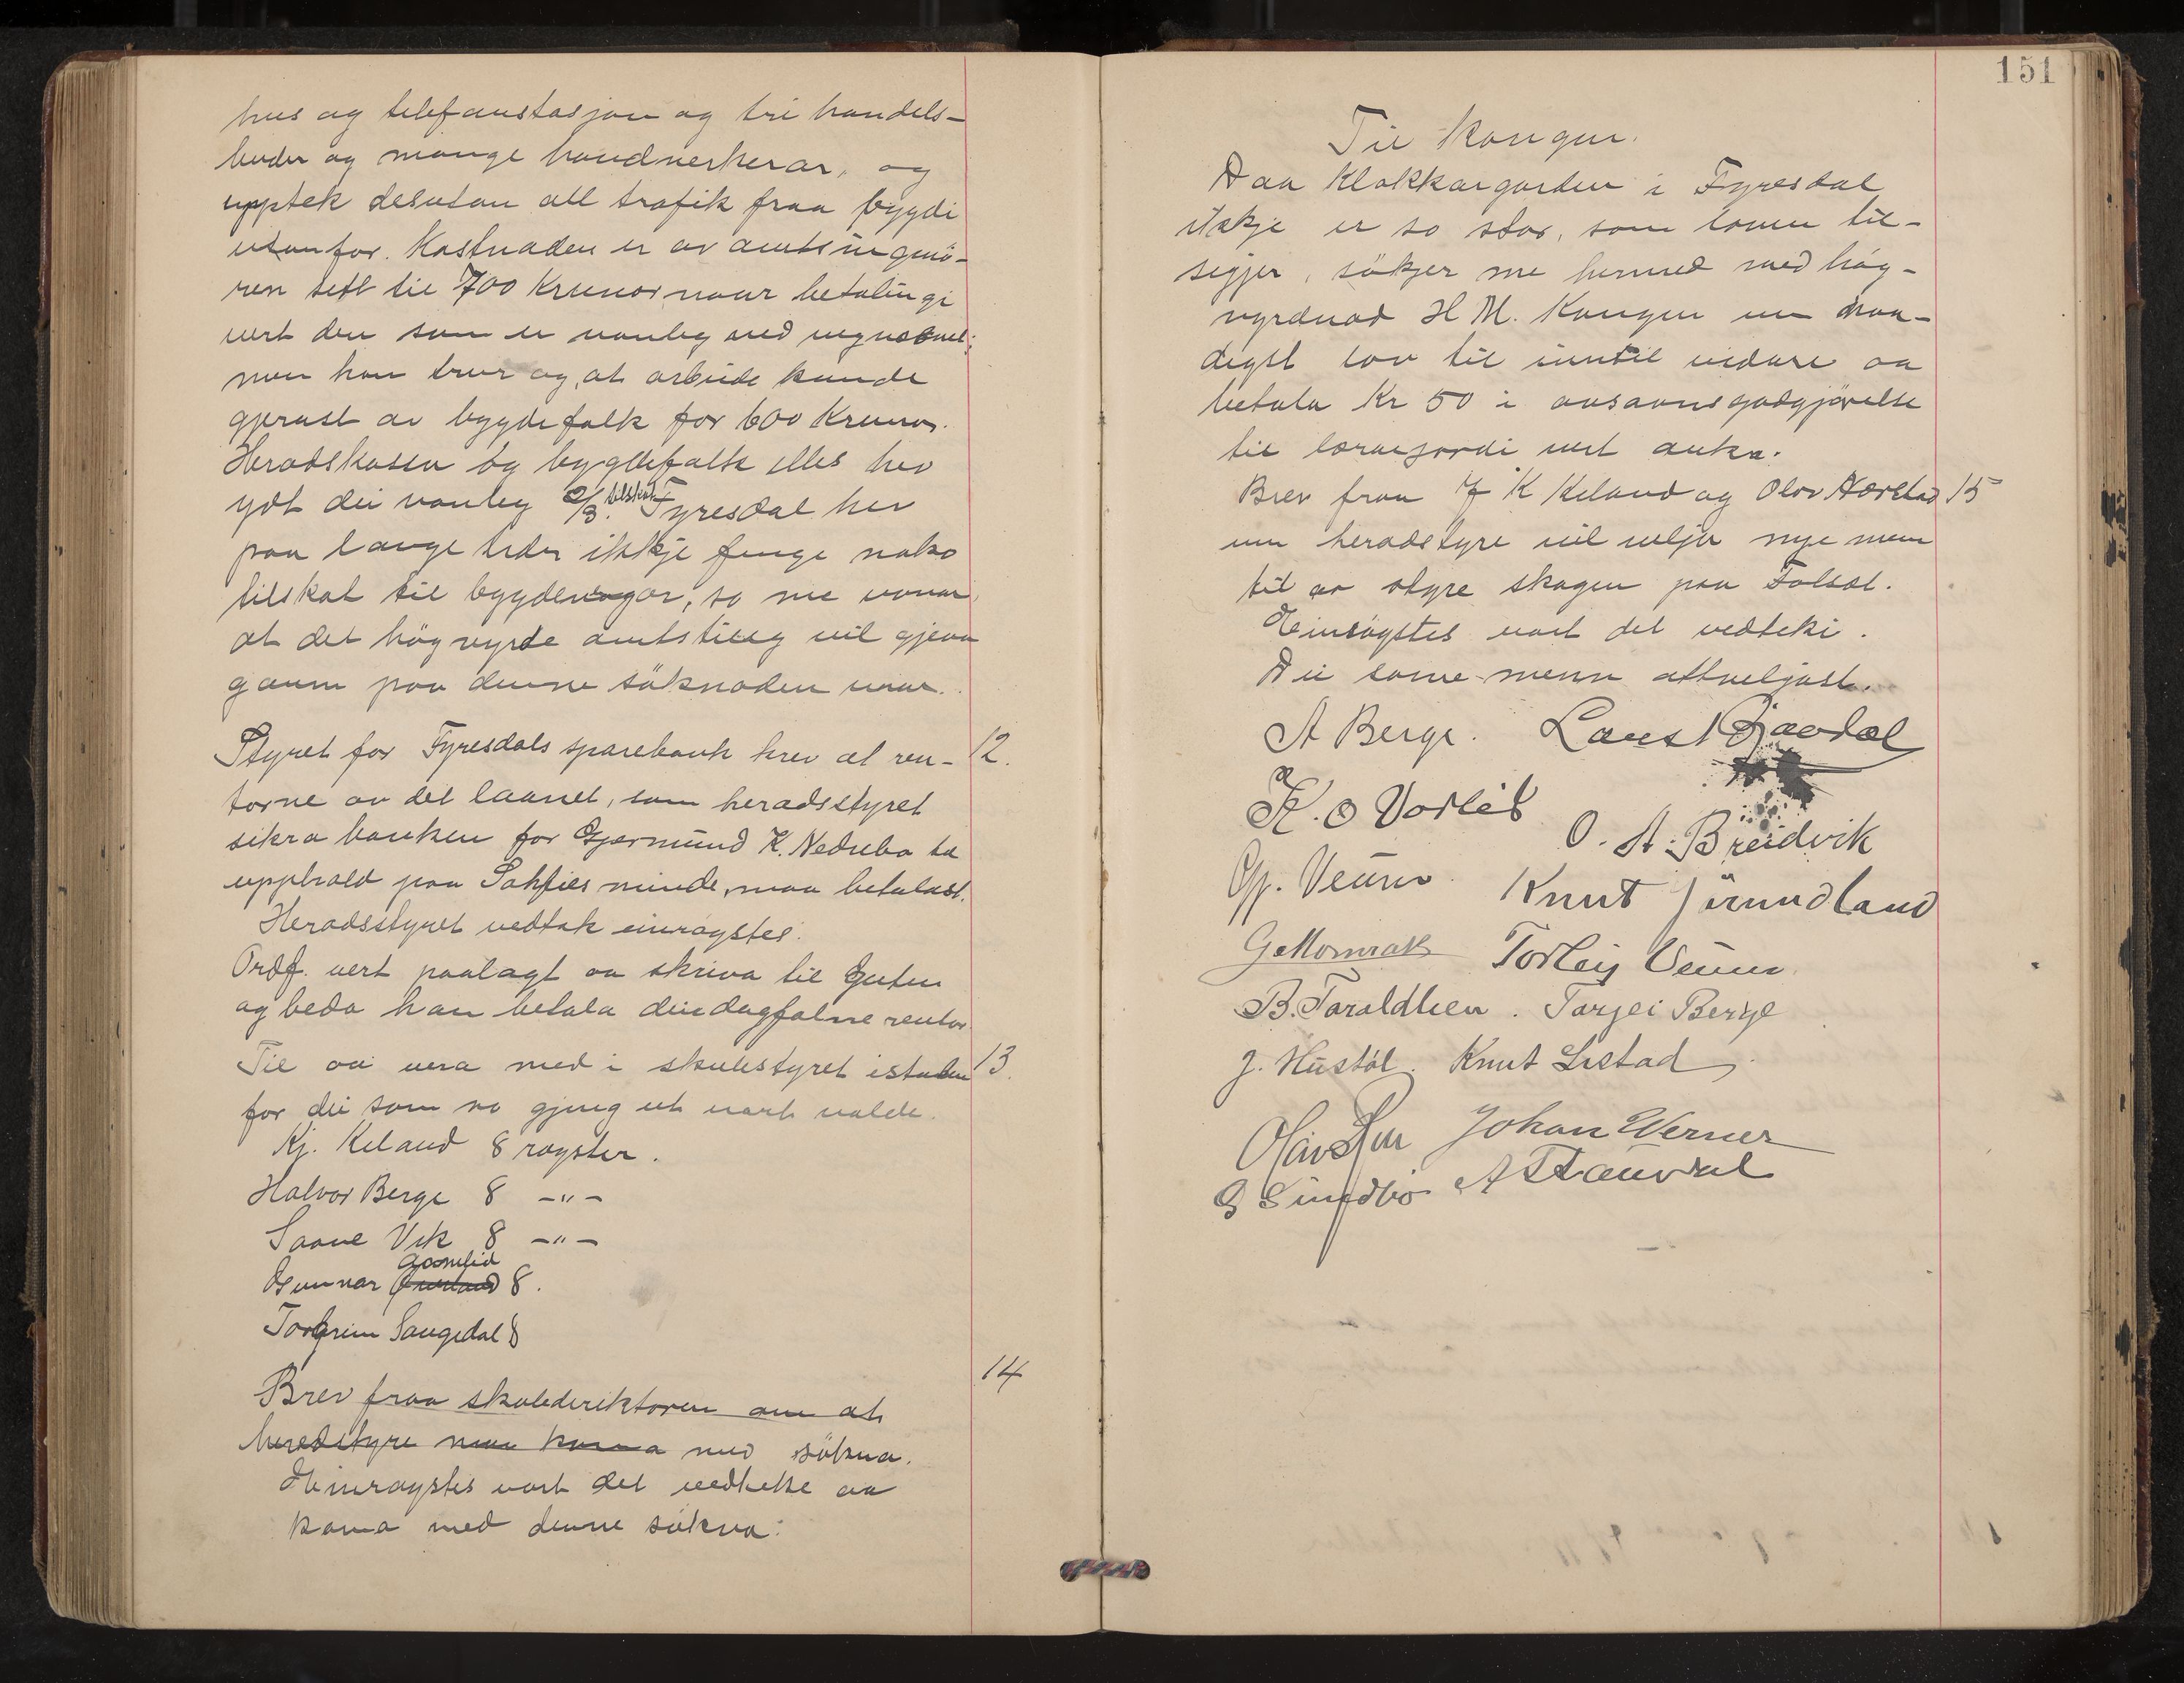 hus og telefonstasjon og tri handels-
buder og mange handverkerar, og
upptek desutan all trafik fraa bygdi
utanfor. Kostnaden er av amtsingeniö-
ren sett til 700 Krunor naar betalingi
vert den som er vanleg ved
men han trur og, at arbeide kunde
gjerast av bygdefolk for 600 Krunor.
Heradskassa og bygdefolk elles hev
ydt dei vanleg 2/3. tilskot Fyresdal hev
paa lange tider ikkje fenge noko
tilskot til bygdevegar, so me vonar
at det högvyrde amtsting vil gjeva
gaum paa denne söknaden vaar.
Styret for Fyresdals sparebank krev at ren- 12.
torne av det laanet, som heradsstyret
sikra banken for Gjermund K. Nedrebo
upphald paa Sofies minde, maa betalast.
Heradsstyret vedtok einröystes.
Ordf. vert paalagt aa skriva til Guten
og beda han betala dei dagfalne rentor.
Til aa vera med i skulestyret istaden 13.
for dei som no gjeng ut vart valde.
Kj. Kiland 8 röyster.
Halvor Berge 8 -"-
Saave Vik 8 -"-
Aasmlid
Gunnar Överland 8.
Torgrim Saugedal 8
14
Brev fraa skulederiktoren om at
heradstyre maa koma med sökna.
Einröystes vart det vedteke aa
koma med denne sökna:
151
Til Kongen.
Daa Klokkargarden i Fyresdal
ikkje er so stor, som loven til-
segjer, sökjer me hermed med hög-
vyrdnad H M. Kongen um naa-
digst lov til inntil vidare aa
betala Kr 50 i
til vert auka.
Brev fraa K Kiland og Olav Norstad 15
um heradstyre vil velja nye menn
til aa styre skogen paa Folsæ.
Einröystes vart det vedteki.
Dei same menn attveljast.
A Berge. Laust Gjavdal
K. O Vorlid
O. A. Breidvik
Gj. Veum Knut Jörundland
G Momrak Torleiv Veum
B. Taraldlien. Torjei Berge
J. Hustöl. Knut Listad
Olav Lien Johan Werner
G Sundbö A Strauvdal